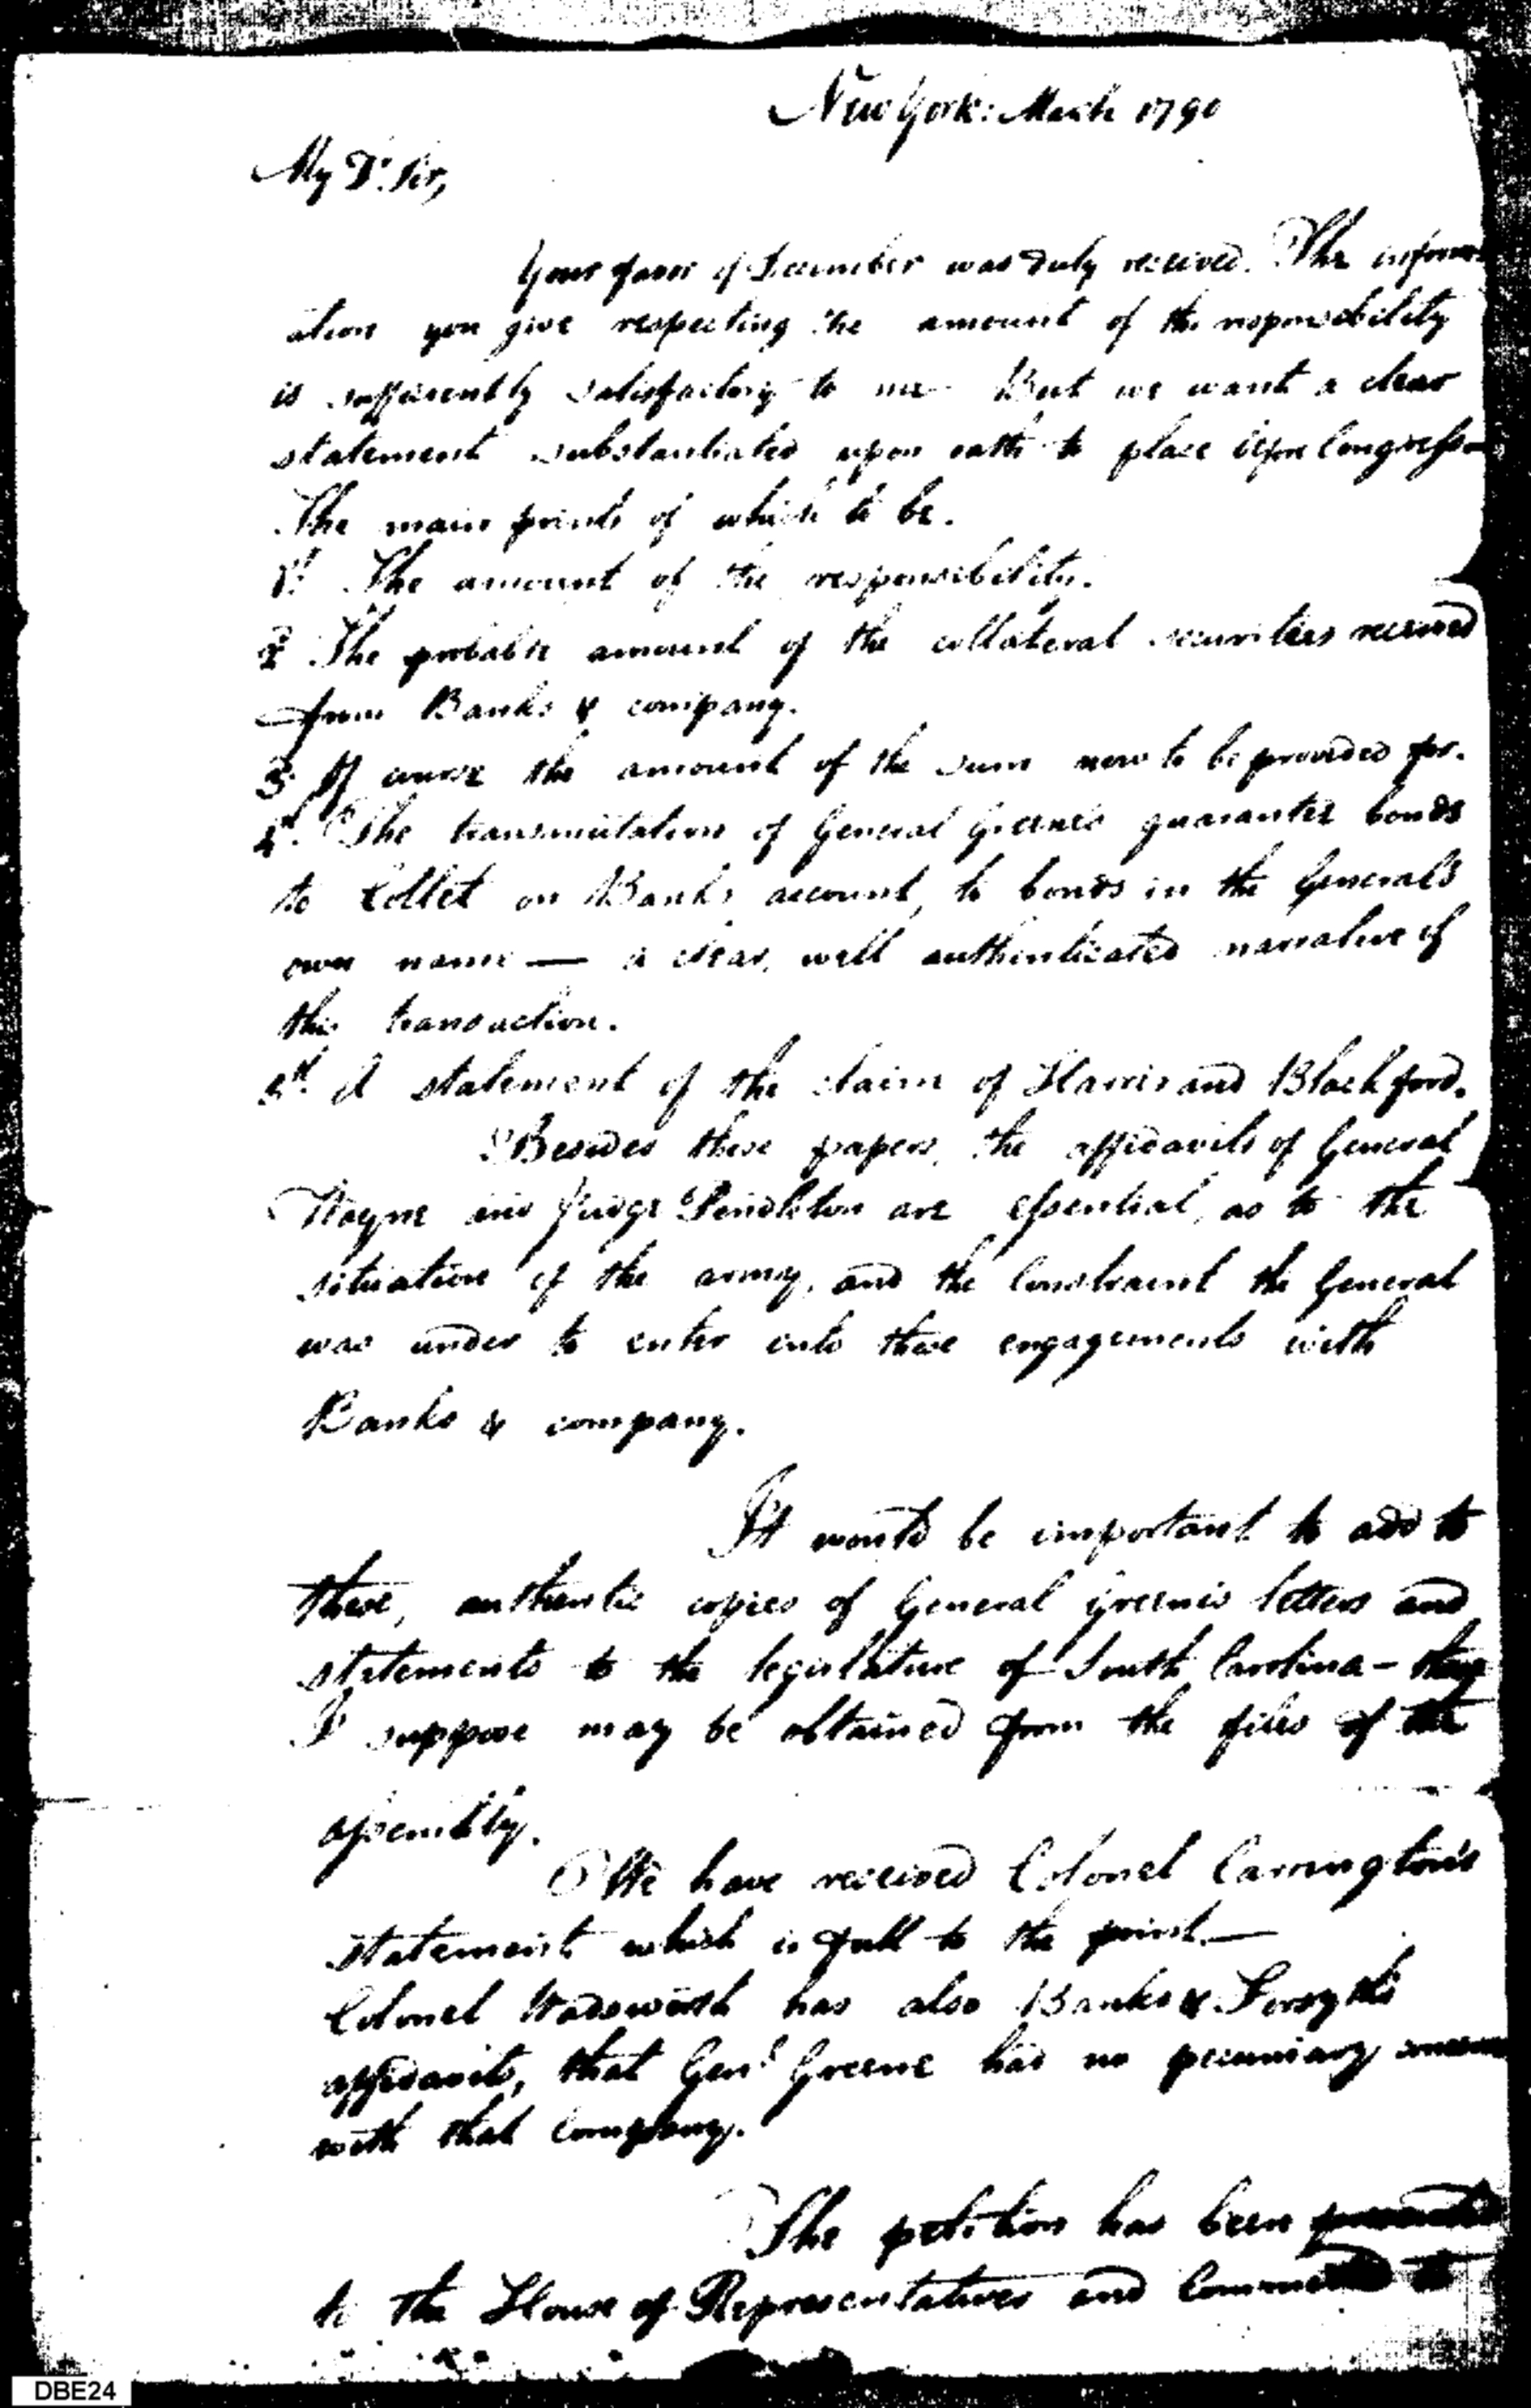 New York: March 1790
My Dr. Sir,
Your favor of December was duly received. The inform
ation you give respecting the amount of the responsibility
is sufficiently satisfactory to me. But we want a clear
statement substantiated upon oath to place before Congress
The main points of which to be.
1st. The amount of the responsibility.
2 The probable amount of the collateral securities received
from Banks & company.
3 Of course the amount of the sum now to be provided for.
4th. The transmutation of General Greene's guarantee bonds
to Collet on Banks account, to bonds in the Generals
own name — a clear, well authenticated narrative of
this transaction.
5th. A statement of the claim of Harris and Blachford.
Besides these papers, the affidavits of General
Wayne and Judge Pendleton are essential, as to the
situation of the army, and the constraint the General
was under to enter into these engagements with
Banks & company.
It would be important to add to
these, authentic copies of General Greene's letters and
statements to the legislature of South Carolina - these
I suppose may be obtained from the files of the
assembly.
We have received Colonel Carrington's
statement which is full to the point. —
Colonel Wadsworth has also Banks & Forsyths
affidavits, that Genl Greene had no pecuniary concern
with that company.
The petition has been presented
to the House of Representatives and Committed to
DBE24